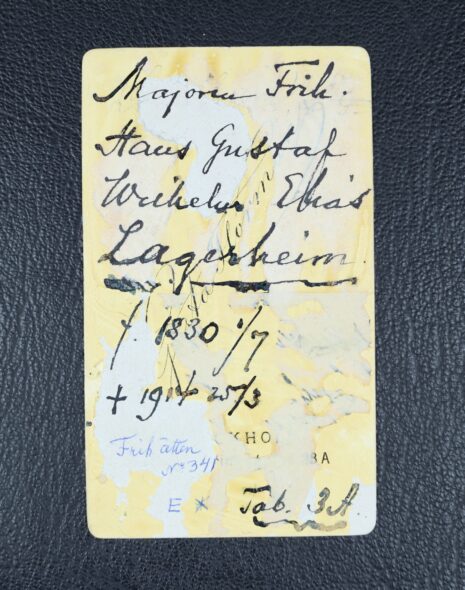 Majoren Frih.
Hans Gustaf
Wilhelm Elias
Lagerheim.
f. 1830 1/7
+ 1914 25/3
KHO
Frih ätten
No 341
BA
E *
Tab. 3A.